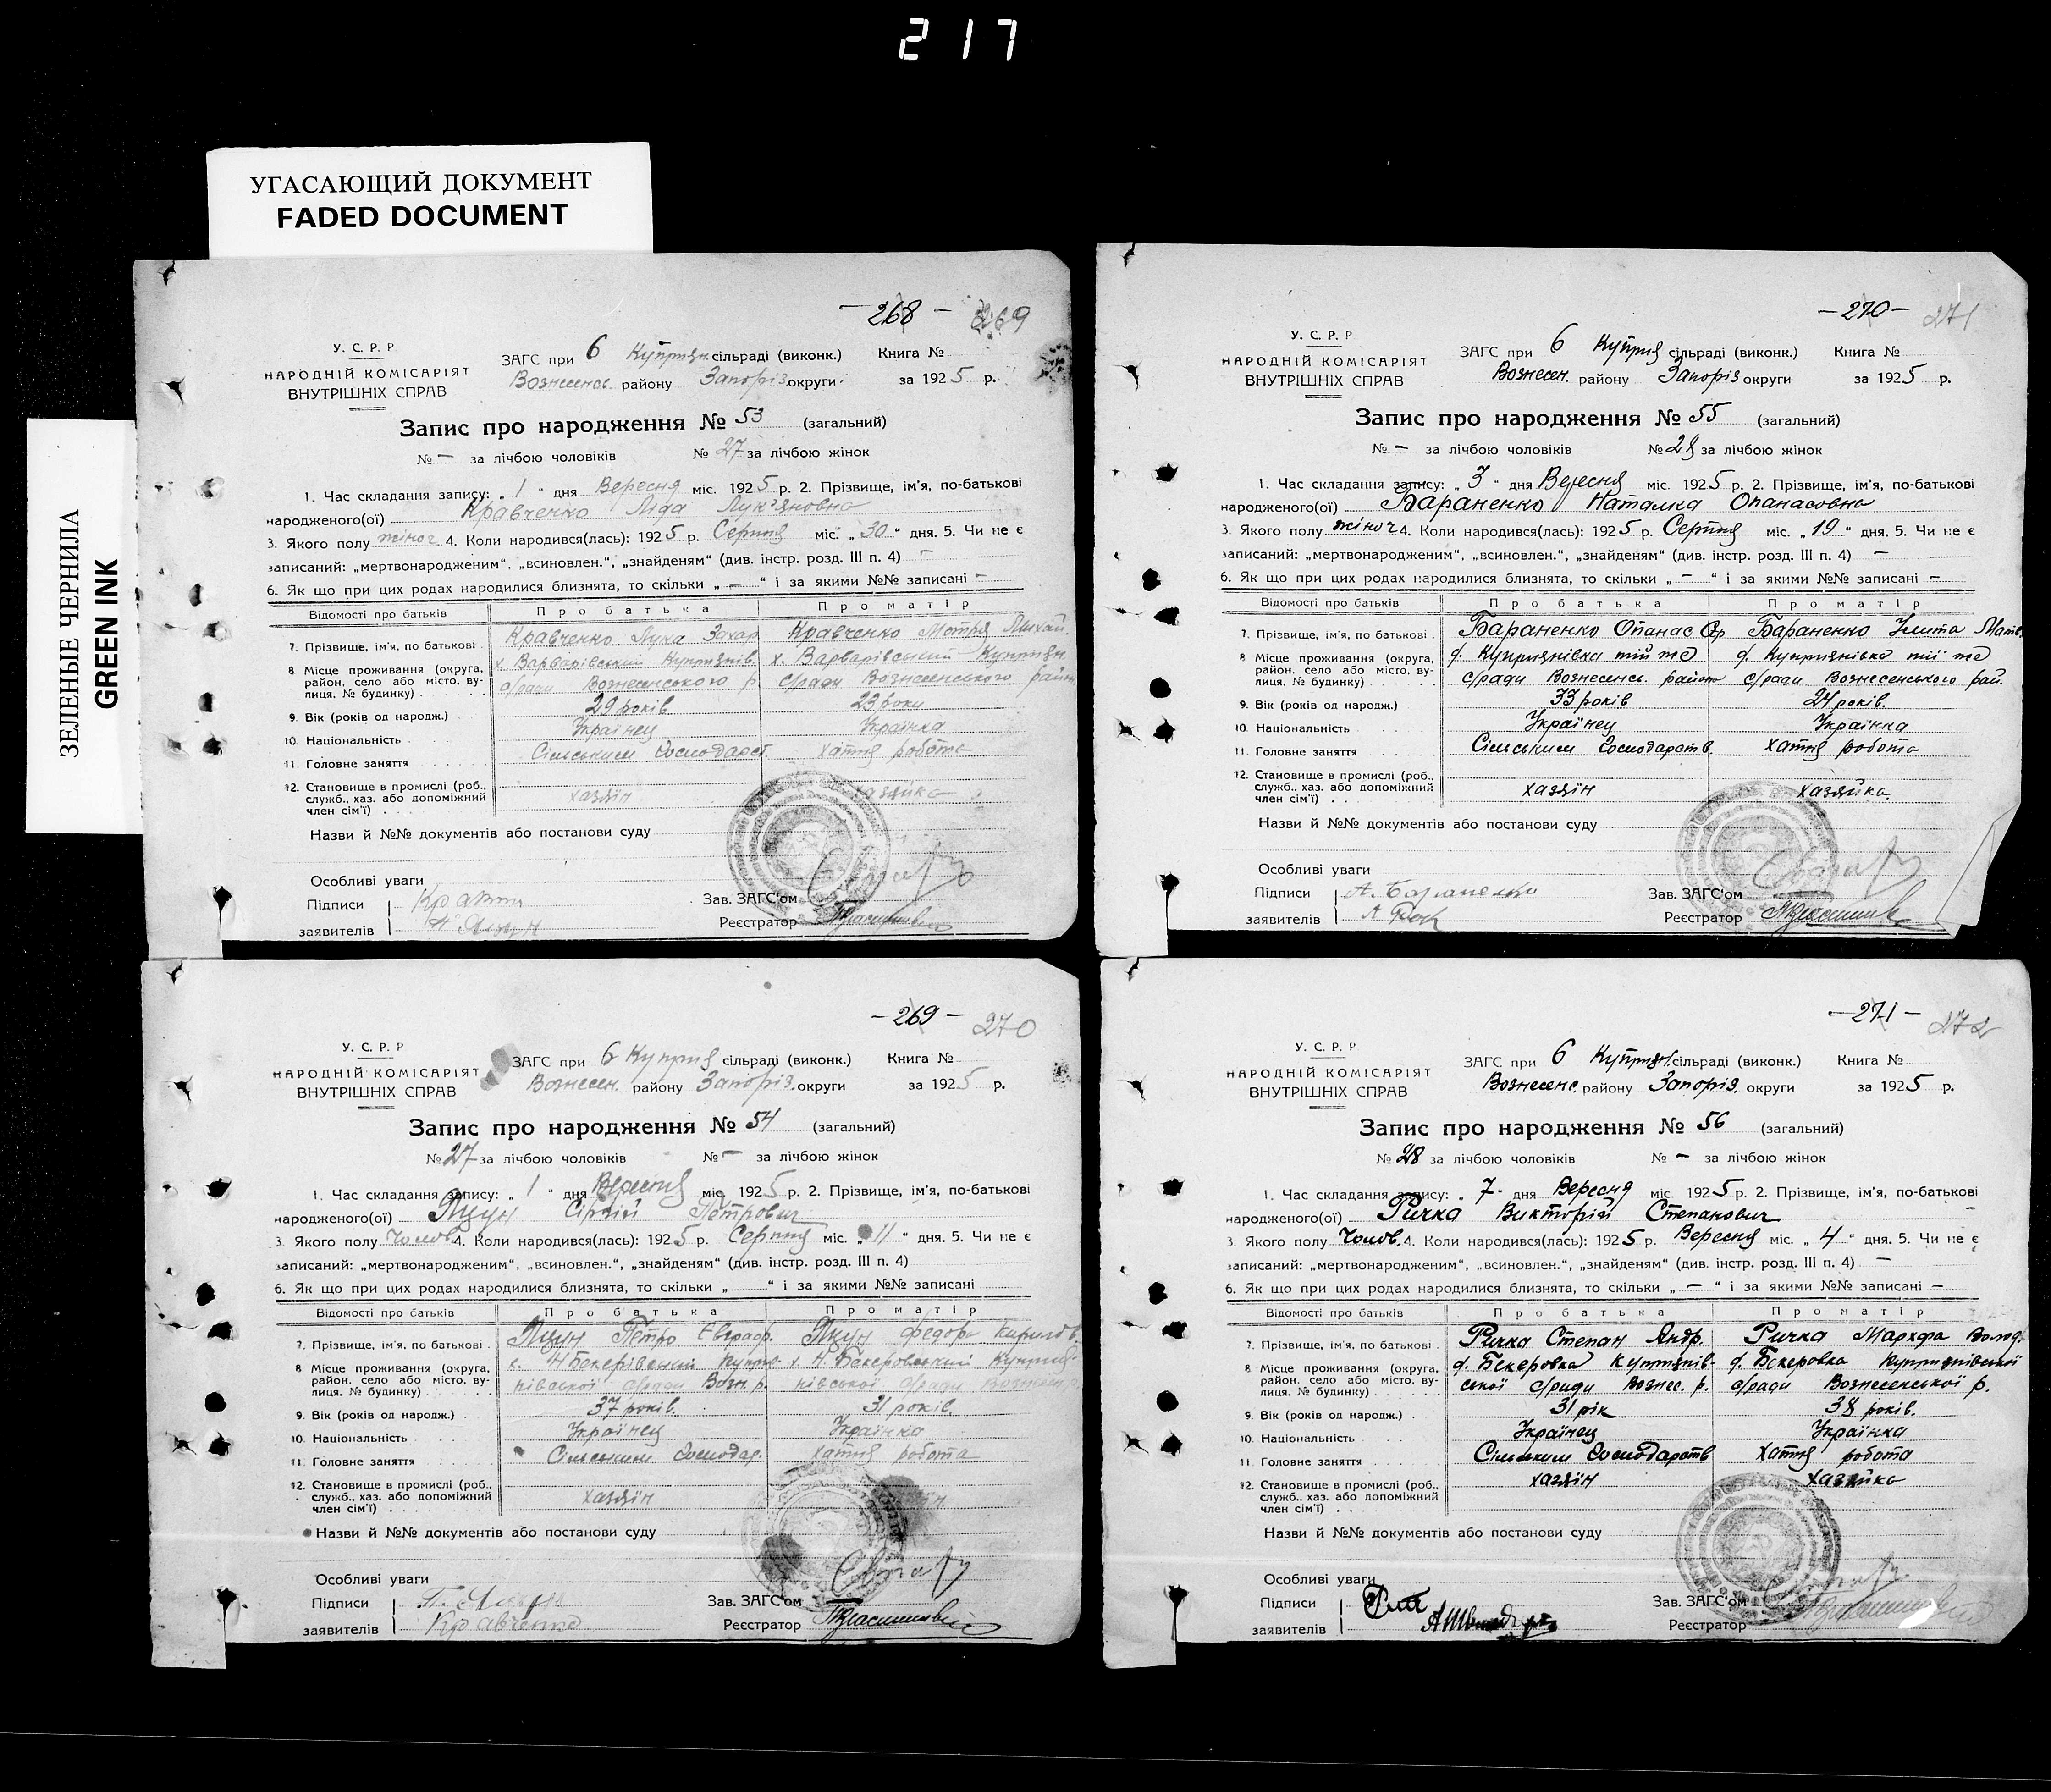 217
УГАСАЮЩИЙ ДОКУМЕНТ
FADED DOCUMENT
ЗЕЛЕНЫЕ ЧЕРНИЛА
GREEN INK
— 268 — 269
У. С. Р. Р
НАРОДНІЙ КОМІСАРІЯТ
ВНУТРІШНІХ СПРАВ
ЗАГС при 6 Куприян. сільраді (виконк.) Книга №
Вознесенс. району Запоріз. округи за 1925 р.
Запис про народження № 53 (загальний)
№ — за лічбою чоловіків № 27 за лічбою жінок
1. Час складання запису: „ 1 “ дня Вересня міс. 1925 р. 2. Прізвище, ім'я, по-батькові
народженого(ої) Кравченко Ліда Лук'яновна
3. Якого полу жіноч 4. Коли народився(лась): 1925 р. Серпня міс. „ 30 “ дня. 5. Чи не є
записаний: „мертвонародженим“, „всиновлен.“, „знайденям“ (див. інстр. розд. III п. 4) —
6. Як що при цих родах народилися близнята, то скільки „ — “ і за якими №№ записані —
Відомості про батьків Про батька Про матір
7. Прізвище, ім'я, по батькові Кравченко Лука Захар Кравченко Мотря Михай.
8 Місце проживання (округа, х. Варварівський Куприянів. х. Варварівський Куприян
район, село або місто, ву- с/ради Вознесенського р с/ради Вознесенського район
лиця. № будинку)
9. Вік (років од народж.) 29 років 23 роки
10. Національність Українец Українка
11. Головне заняття Сільським Господарст. хатня робота
12. Становище в промислі (роб., хазяін хазяйка
служб., хаз. або допоміжний
член сім'ї)
Назви й №№ документів або постанови суду
Особливі уваги
Підписи Зав. ЗАГС'ом
заявителів Реєстратор
— 269 — 270
У. С. Р. Р
НАРОДНІЙ КОМІСАРІЯТ
ВНУТРІШНІХ СПРАВ
ЗАГС при 6 Куприя сільраді (виконк.) Книга №
Вознесен. району Запоріз. округи за 1925 р.
Запис про народження № 54 (загальний)
№ 27 за лічбою чоловіків № — за лічбою жінок
1. Час складання запису: „ 1 “ дня Вересня міс. 1925 р. 2. Прізвище, ім'я, по-батькові
народженого(ої) Яцун Сіргій Петрович
3. Якого полу Чолов. 4. Коли народився(лась): 1925 р. Серпня міс. „ 11 “ дня. 5. Чи не є
записаний: „мертвонародженим“, „всиновлен.“, „знайденям“ (див. інстр. розд. III п. 4)
6. Як що при цих родах народилися близнята, то скільки „ “ і за якими №№ записані
Відомості про батьків Про батька Про матір
7. Прізвище, ім'я, по батькові Яцун Петро Евграф. Яцун Федора Кирилов.
8 Місце проживання (округа, х. Н Бекерівський Х. Н. Бекеровський Куприя-
район, село або місто, ву- нівської с/ради Возн р. нівської с/ради
лиця. № будинку)
9. Вік (років од народж.) 37 років. 31 років.
10. Національність Українец Українка
11. Головне заняття Сільським Господар. хатня робота
12. Становище в промислі (роб., хазяін
служб., хаз. або допоміжний
член сім'ї)
Назви й №№ документів або постанови суду
Особливі уваги
Підписи Зав. ЗАГС'ом
заявителів Кравченко Реєстратор
— 270 — 271
У. С. Р. Р
НАРОДНІЙ КОМІСАРІЯТ
ВНУТРІШНІХ СПРАВ
ЗАГС при 6 Куприя сільраді (виконк.) Книга №
Вознесен. району Запоріз округи за 1925 р.
Запис про народження № 55 (загальний)
№ — за лічбою чоловіків № 28 за лічбою жінок
1. Час складання запису: „ 3 “ дня Вересня міс. 1925 р. 2. Прізвище, ім'я, по-батькові
народженого(ої) Бараненко Наталка Опанасовна
3. Якого полу жіноч 4. Коли народився(лась): 1925 р. Серпня міс. „ 19 “ дня. 5. Чи не є
записаний: „мертвонародженим“, „всиновлен.“, „знайденям“ (див. інстр. розд. III п. 4) —
6. Як що при цих родах народилися близнята, то скільки „ — “ і за якими №№ записані —
Відомості про батьків Про батька Про матір
7. Прізвище, ім'я, по батькові Бараненко Опанас Бараненко Улита Матв.
8 Місце проживання (округа, д. Куприянівка тій же д. Куприянівка тії же
район, село або місто, ву- с/ради Вознесенс. район с/ради Вознесенського рай.
лиця. № будинку)
9. Вік (років од народж.) 33 років 24 років.
10. Національність Українец Українка
11. Головне заняття Сільським Господарств хатня робота
12. Становище в промислі (роб., хазяін хазяйка.
служб., хаз. або допоміжний
член сім'ї)
Назви й №№ документів або постанови суду
Особливі уваги
Підписи А. Бараненко Зав. ЗАГС'ом
заявителів Реєстратор
— 271 — 272
У. С. Р. Р
НАРОДНІЙ КОМІСАРІЯТ
ВНУТРІШНІХ СПРАВ
ЗАГС при 6 Куприян. сільраді (виконк.) Книга №
Вознесенс. району Запоріз. округи за 1925 р.
Запис про народження № 56 (загальний)
№ 28 за лічбою чоловіків № — за лічбою жінок
1. Час складання запису: „ 7 “ дня Вересня міс. 1925 р. 2. Прізвище, ім'я, по-батькові
народженого(ої) Ричка Викторій Степанович
3. Якого полу Чолов. 4. Коли народився(лась): 1925 р. Вересня міс. „ 4 “ дня. 5. Чи не є
записаний: „мертвонародженим“, „всиновлен.“, „знайденям“ (див. інстр. розд. III п. 4) —
6. Як що при цих родах народилися близнята, то скільки „ — “ і за якими №№ записані —
Відомості про батьків Про батька Про матір
7. Прізвище, ім'я, по батькові Ричка Степан Андр. Ричка Мархфа Волод.
8 Місце проживання (округа, д. Бекеровка Куприянів- д. Бекеровка Куприянівської
район, село або місто, ву- ської с/ради Вознес. р. с/ради Вознесенської р.
лиця. № будинку)
9. Вік (років од народж.) 31 рік 38 років.
10. Національність Українец Українка
11. Головне заняття Сільським Господарств хатня робота
12. Становище в промислі (роб., хазяін хазяйка
служб., хаз. або допоміжний
член сім'ї)
Назви й №№ документів або постанови суду
Особливі уваги
Підписи Зав. ЗАГС'ом
заявителів Реєстратор